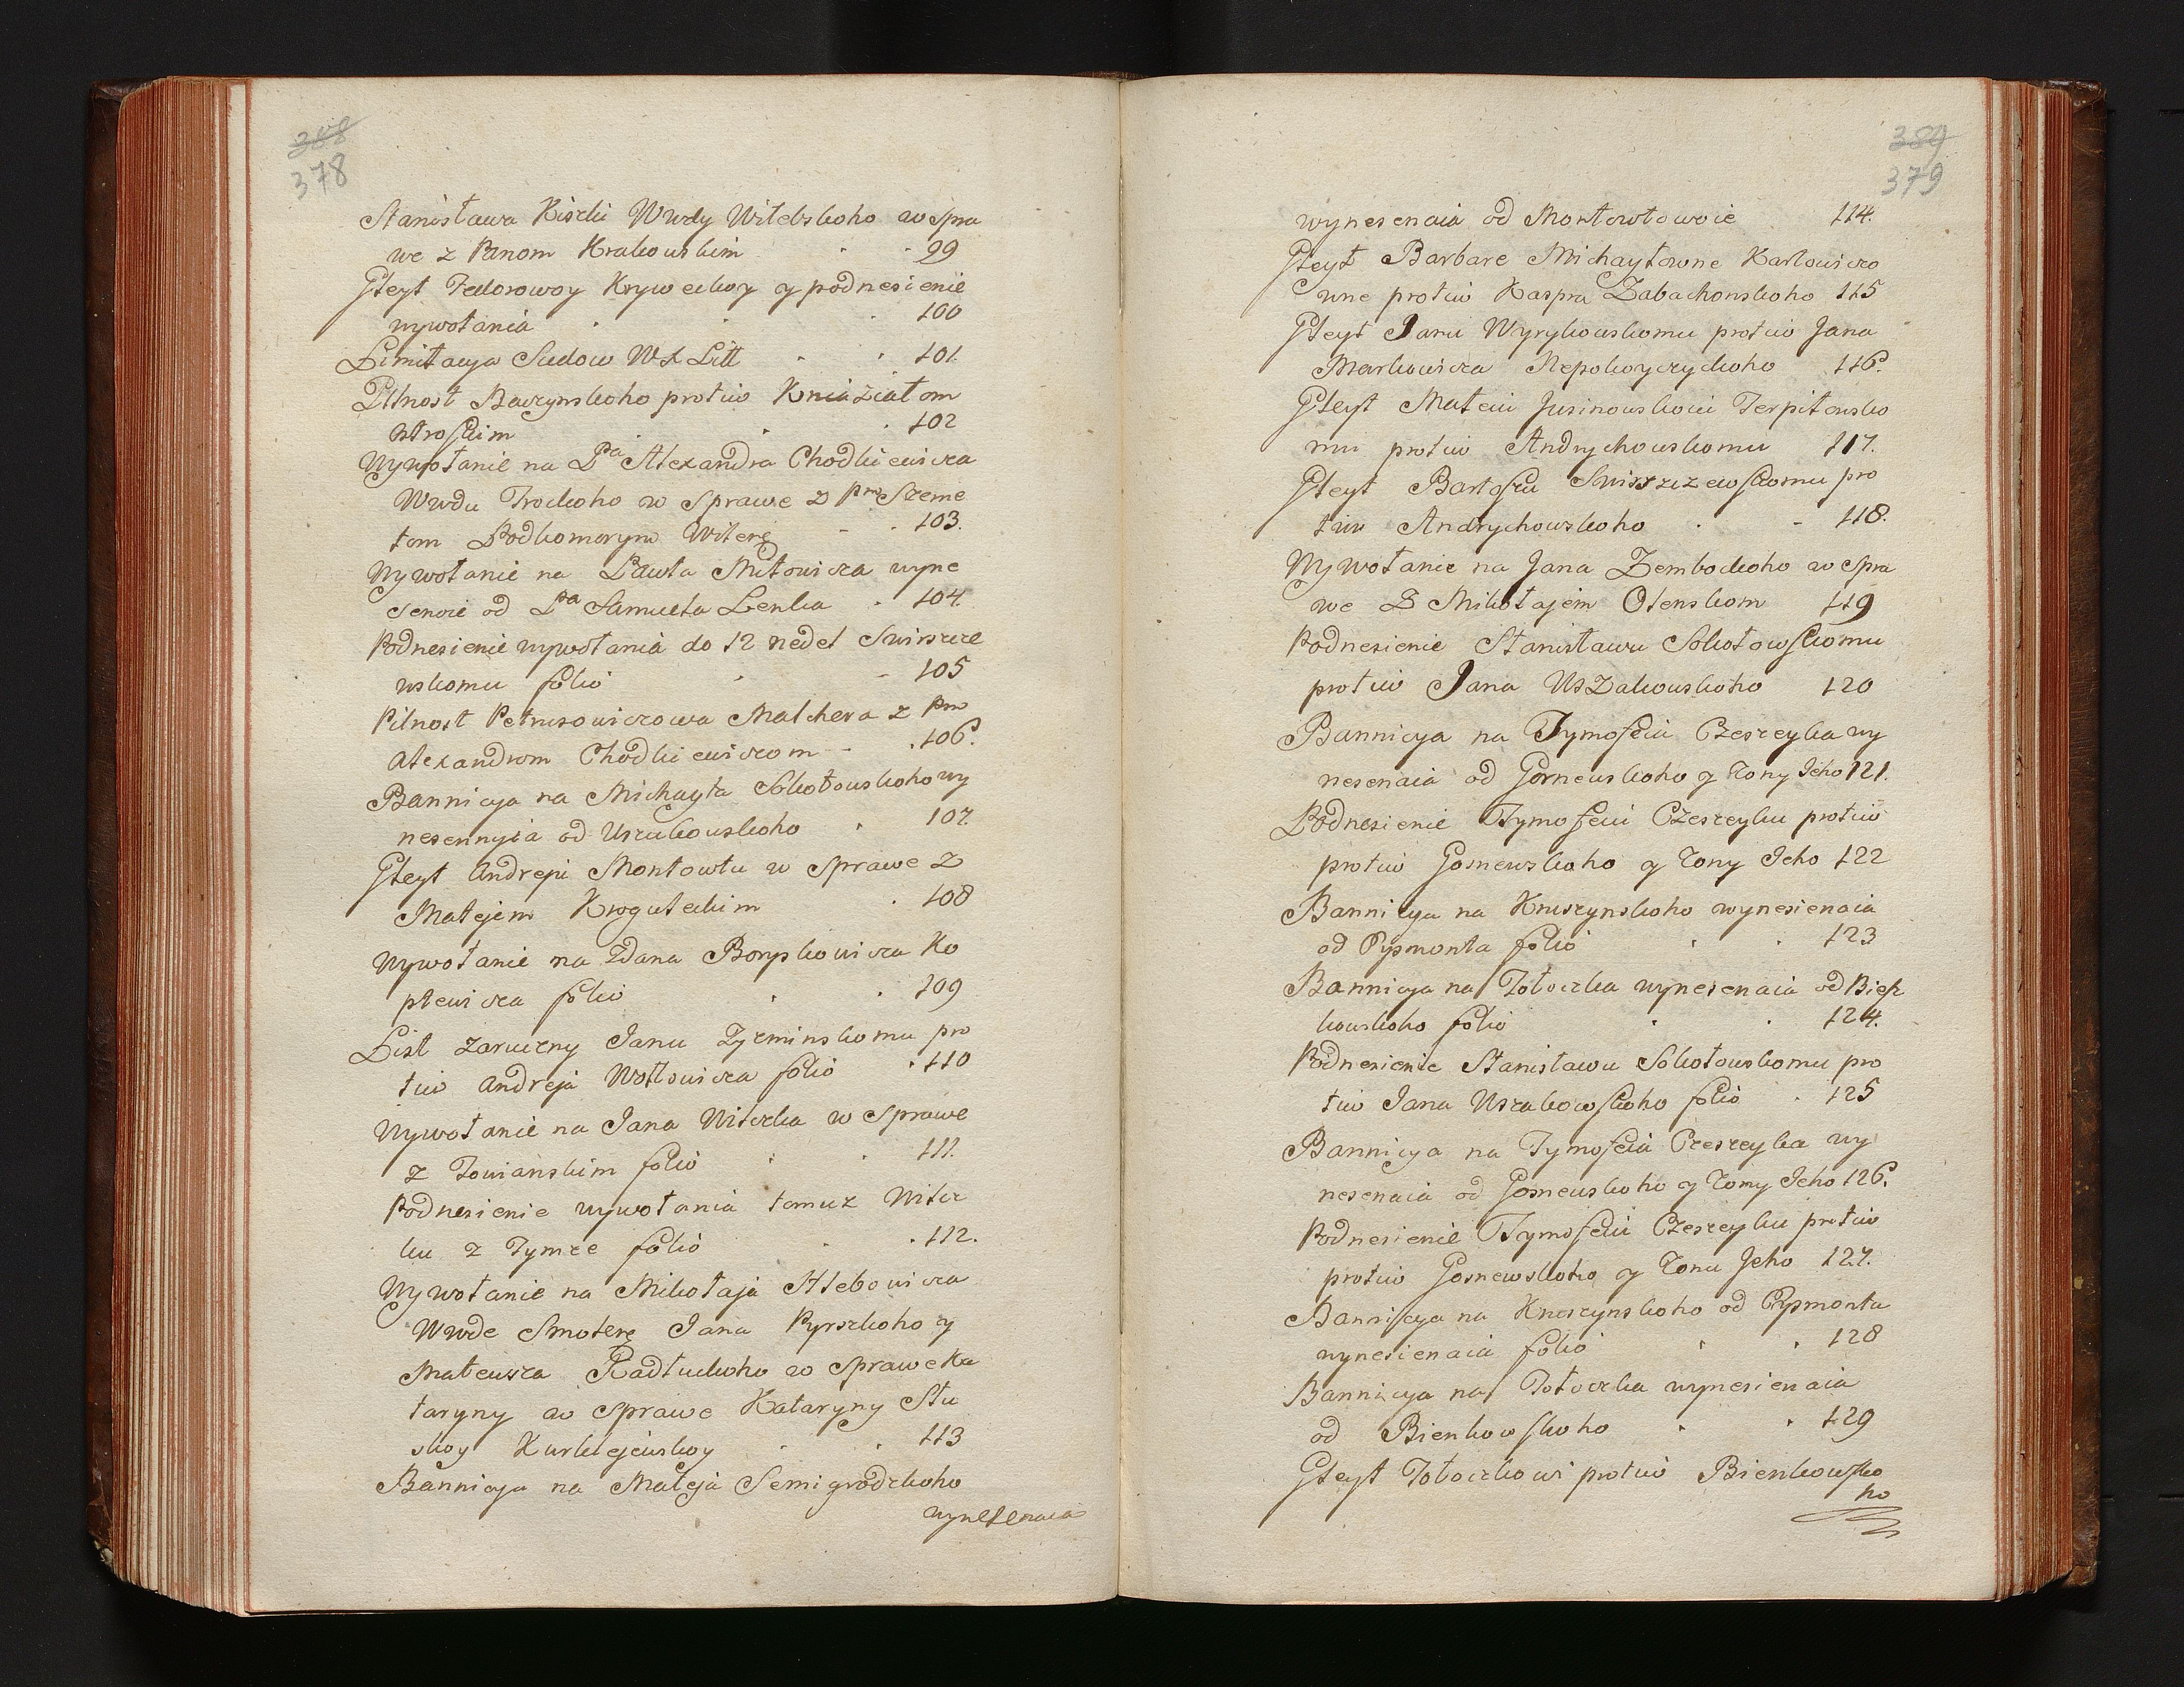 388
378
Stanisława Kiszki Wwdy Witebskoho w spra
we z Panom Krakowskim 99
Gleyt Fedorowoy Kryweckoy y podnesienie
wywołania 100
Limitacya Sudow WX Litt 101.
Pilnost Baczynskoho protiw Kniaziatom
102
Wywołanie na Pa Alexandra Chodkiewicza
Wwdu Trockoho w Sprawe z Pm Szeme
tom Podkomorym Wilenę 103.
Wywołanie na Pawła Mitowicza wyne
senoie od Pa Samuela Lenka 104.
Podnesienie wywołania do 12 nedel Swiszcze
wskomu folio 105
Pilnost Petrusowiczowa Malchera z Pm
Alexandrom Chodkiewiczom 106.
Bannicya na Michayła Sokołowskoho wy
nesennyia od Uszakowskoho 107.
Gleyt Andreju Montowtu w Sprawe z
Matejem Kroguleckim 108
Wywołanie na Zdana Boryskowicza Ko
ptewicza folio 109
List zaruczny Janu Zyzminskomu pro
tiw Andreja Wołłowicza folio 110
Wywołanie na Jana Witczka w Sprawe
z Towianskim folio 111.
Podnesienie wywołania tomuz Witcz
ku z Tymze folio 112.
Wywołanie na Mikołaja Hlebowicza
Wwde Smolenę Jana Pyrszkoho y
Mateusza Radłuckoho w Sprawe Ka
taryny w Sprawe Kataryny Stu
skoy Kurklejewskoy 113
Bannicya na Mateja Semigrodzkoho
wynesenaia
389
379
wynesenaia od Montowtowoie 114.
Gleyt Barbare Michayłowne Karłowiczo
wne protiw Kaspra Zabachonskoho 115
Gleyt Janu Wyrykowskomu protiw Jana
Markowicza Nepokoyczyckoho 116.
Gleyt Mateiu Jusinowskoiu Terpiłowsko
mu protiw Andrychowskomu 117.
Gleyt Bartoszu Swiszczewskomu pro
tiw Andrychowskoho 118.
Wywołanie na Jana Zembockoho w spra
we Z Mikołajem Olenskom 119
Podnesienie Stanisławu Sokołowskomu
protiw Jana UsZakowskoho 120
Bannicya na Tymofeia Czeszeyka wy
nesenaia od Gosnewskoho y Zony Jeho 121.
Podnesienie Tymofeiu Czeszeyku protiw
protiw Gosnewskoho y Zony Jeho 122
Bannicya na Kruszynskoho wynesienaia
od Pysmonta folio 123
Bannicya na Tołoczka wynesenaia od Bień
kowskoho folio 124.
Podnesienie Stanisławu Sokołowskomu pro
tiw Jana Uszakowskoho folio 125
Bannicya na Tymofeia Czeszeyka wy
nesenaia od Gosnewskoho y Zony Jeho 126.
Podnesienie Tymofeiu Czeszeyku protiw
protiw Gosnewskoho y Zonu Jeho 127.
Bannicya na Kruszynskoho od Pysmonta
wynesienaia folio 128
Bannicya na Tołoczka wynesienaia
od Bienkowskoho 129
Gleyt Tołoczkowi protiw Bienkowsko
ho